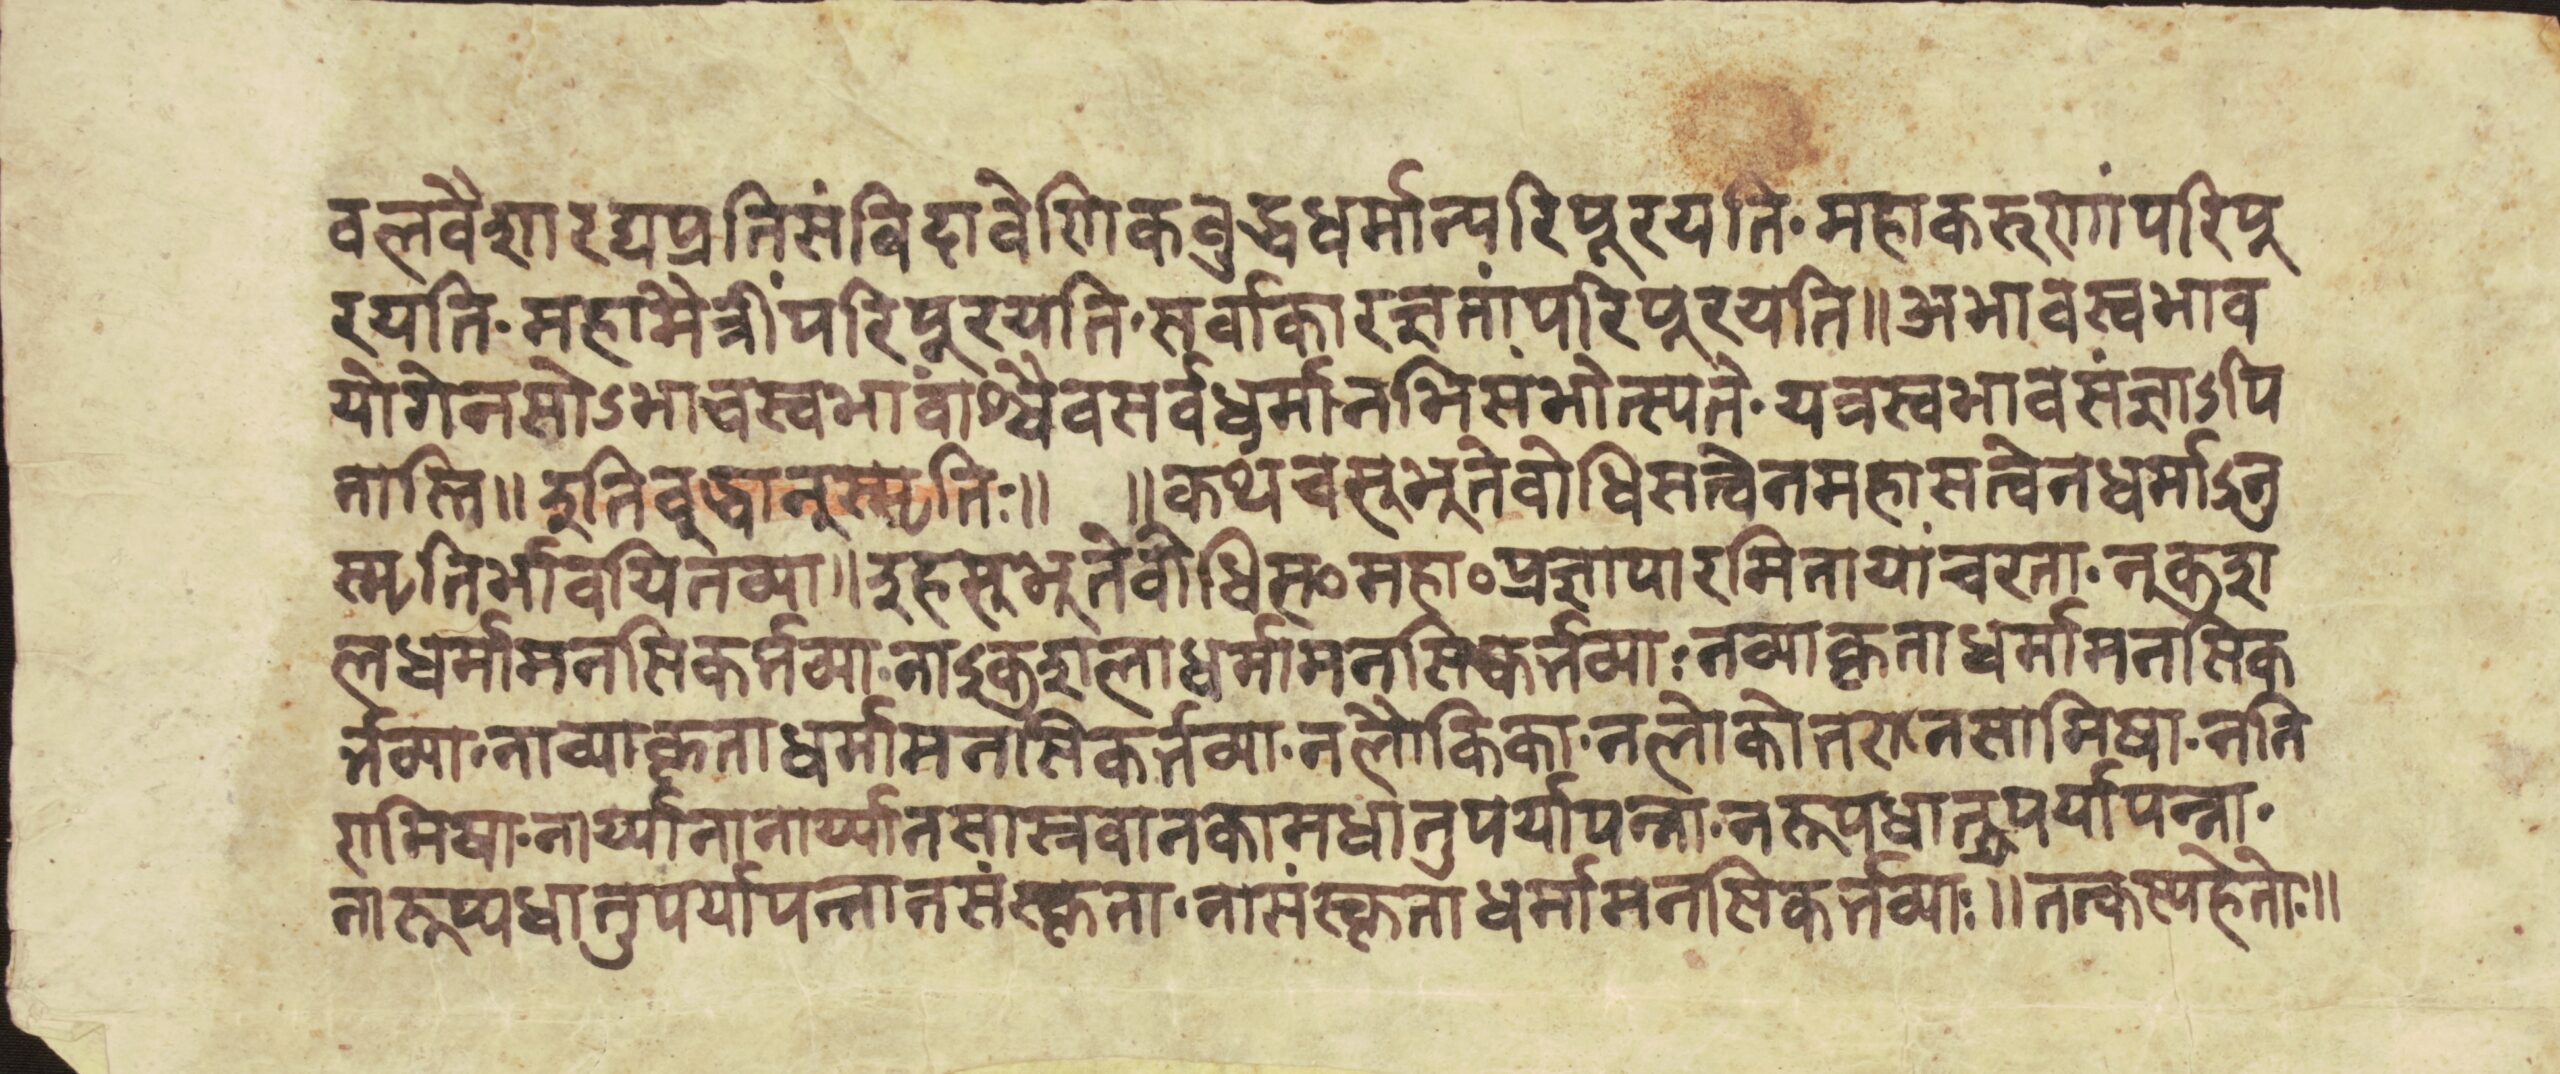 वलवैशारद्यप्रतिसंविदावेणिकवुद्धधर्मान्परिपूरयति·महाकरुणांपरिपू
रयति·महामैत्रींपरिपूरयति·सर्वाकारज्ञतांपरिपूरयति॥अभावस्वभाव
योगेनसोऽभावस्वभावांश्चैवसर्वधर्मानभिसंभोत्स्यते·यत्रस्वभावसंज्ञाऽपि
नास्ति॥इतिवुद्धानुस्मृतिः॥ ॥कथंचसुभूतेवोधिसत्वेनमहासत्वेनधर्माऽनु
स्मृतिर्भावयितव्या॥इहसुभूतेवोधिस०महा०प्रज्ञापारमितायांचरता·नकुश
लधर्मामनसिकर्त्तव्या·नाऽकुशलाधर्मामनसिकर्त्तव्या·नव्याकृताधर्मामनसिक
र्त्तव्या·नाव्याकृताधर्मामनसिकर्त्तव्या·नलौकिका·नलोकोत्तरानसामिषा·ननि
रामिषा·नार्य्यानानार्य्यानसास्रवानकामधातुपर्यापन्ना·नरूपधातुपर्यापन्ना·
नारूप्यधातुपर्यापन्नानसंस्कृता·नासंस्कृताधर्मामनसिकर्त्तव्याः॥तत्कस्यहेतोः॥